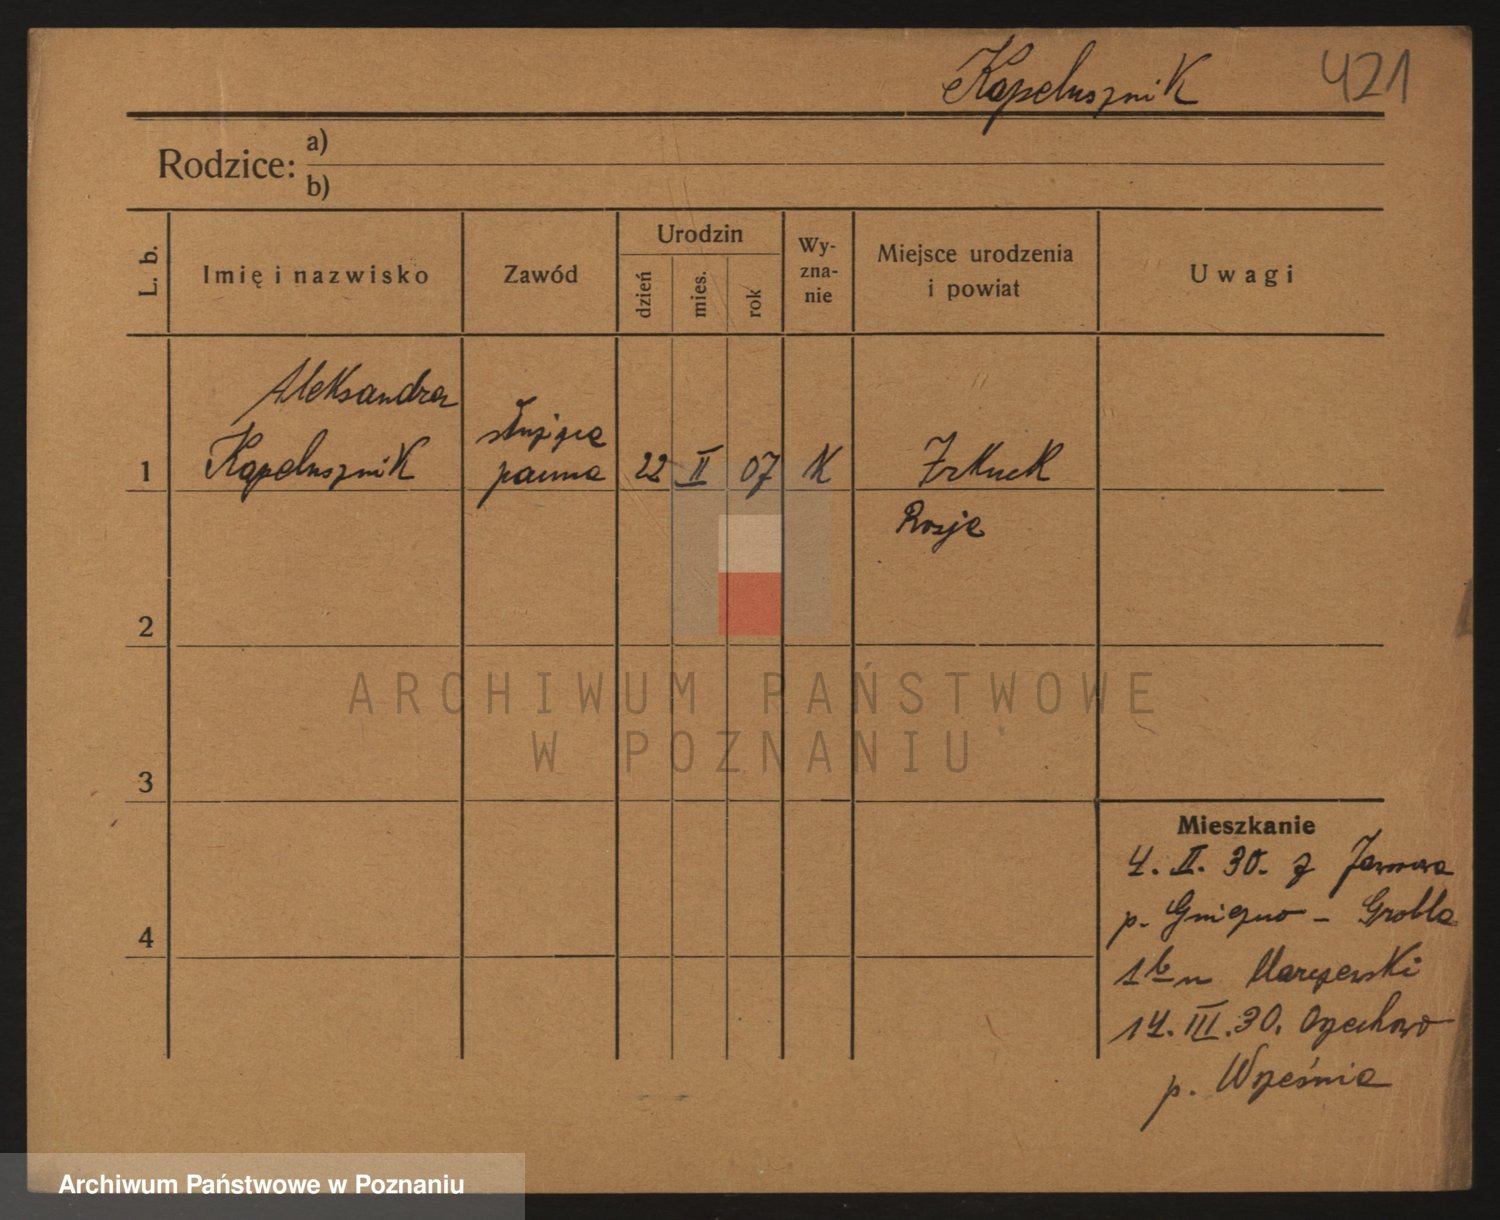 Kapelusznik 421
Rodzice: a)
b)
L. b. Imię i nazwisko Zawód Urodzin dzień mies. rok Wy-zna-nie Miejsce urodzenia i powiat Uwagi
Aleksandra
1 Kapelusznik służąca panna 22 II 07 K Irkuck
Rosja
2
3
4
Mieszkanie
4. II. 30. z
p. Gniezno - Grobla
1b u
14. III. 30. Orzechowo
p. Września
ARCHIWUM PAŃSTWOWE
W POZNANIU
Archiwum Państwowe w Poznaniu